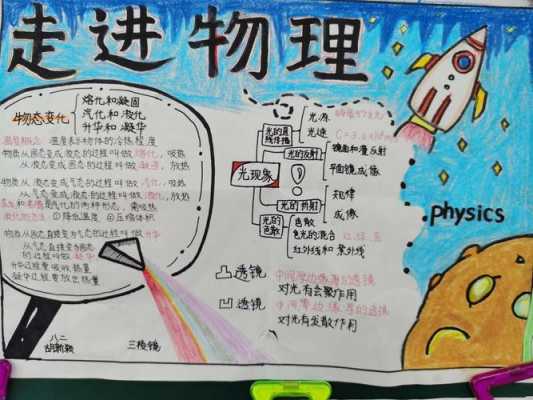 走进物理
物态变化
熔化和凝固
汽化和液化
升华和凝华
温度表示物体的冷热程度
物质从固态变成液态的过程叫做熔化,吸热
从液态变成固态的过程叫做凝固,放热
物质从液态变成气态的过程叫做汽化,吸热
从气态变成液态的过程叫做液化,放热
蒸发和沸腾是汽化的两种形态,需吸热
液化的方法:①降低温度 ②压缩体积
物质从固态直接变为气态的过程叫做升华
从气态直接变为固态
的过程叫做凝华
升华过程要吸收热量
凝华过程要放出热量
八二
三棱镜
光现象
光的直线传播
光源
光速
光的反射
镜面和漫反射
平面镜成像
光的折射
规律
成像
光的色散
色散
色光的混合 红.绿.蓝
红外线和紫外线
凸透镜
中间厚边缘薄的透镜
对光有会聚作用
凹透镜
中间薄边缘厚的透镜
对光有发散作用
physics